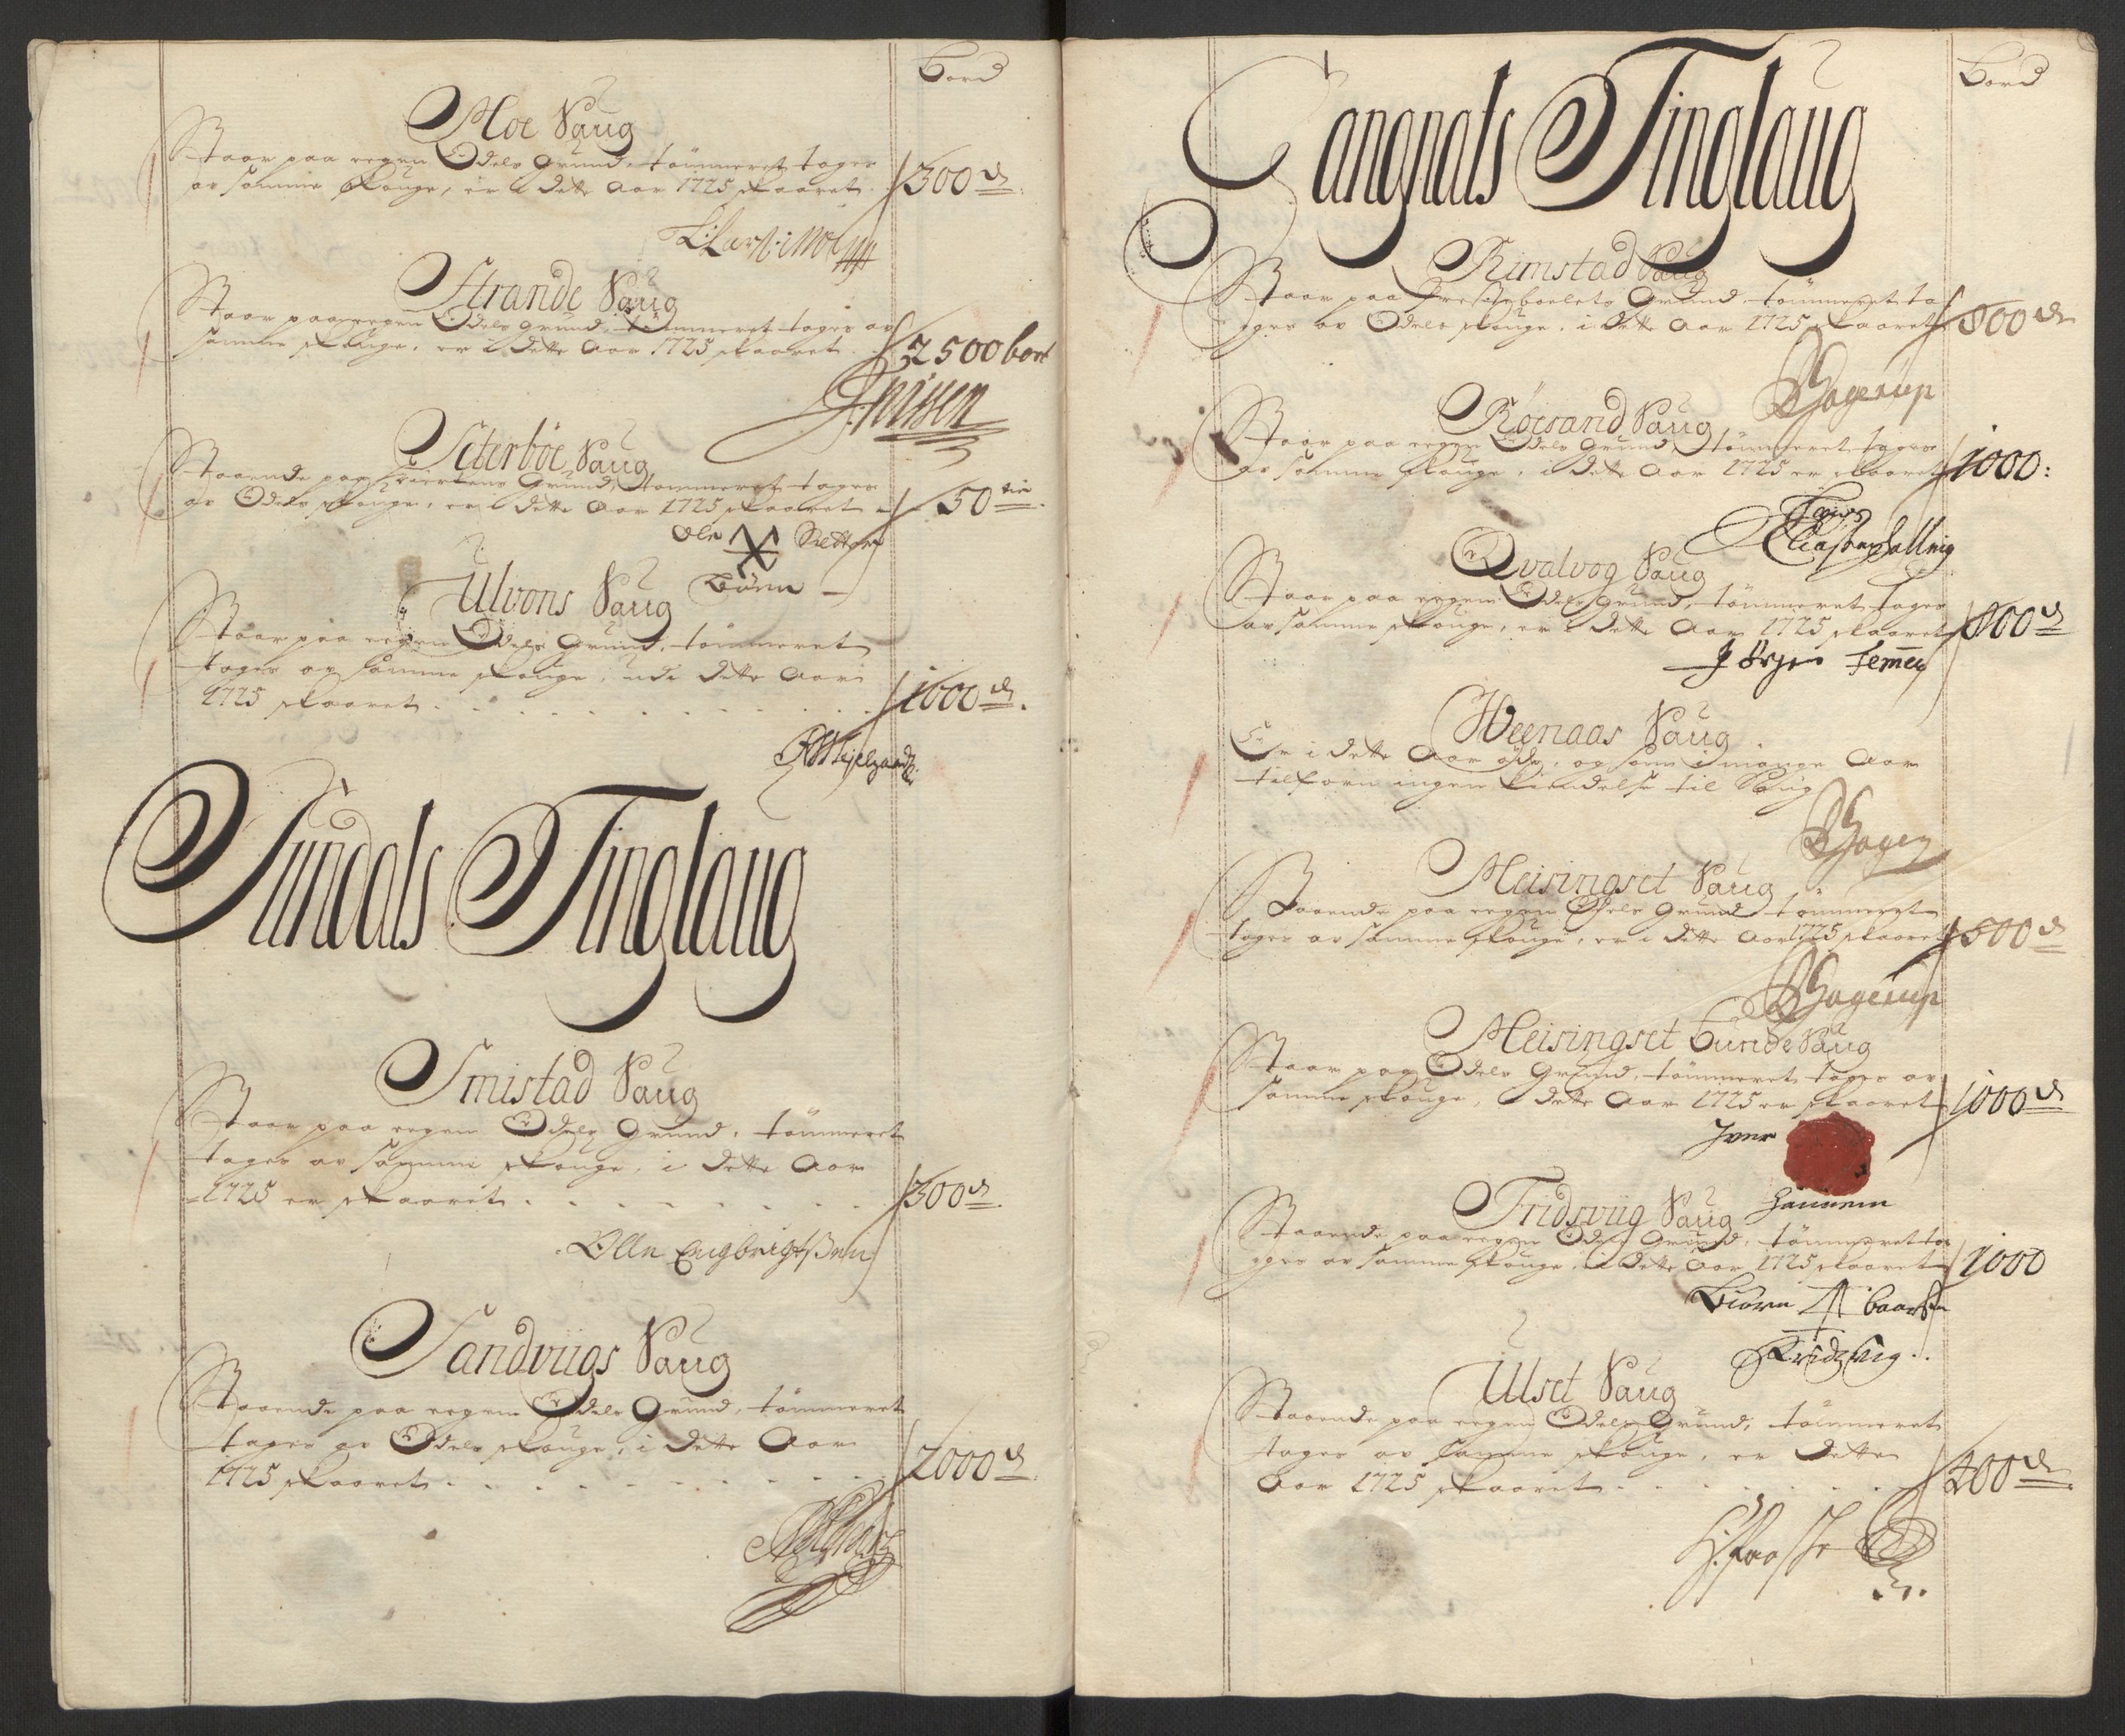 Bord
Moe Saug
Staar paa eegen Odels Grund, tømmeret tages
av samme skouge, er i dette Aar 1725 skaaret
300
Strande Saug
Staar paa eegen Odels grund, tømmeret tages av
samme skouge, er i dette Aar 1725 skaaret
2500 bort
Nissen
Seterböe Saug
Staaende paa Grund, tømmeret tages
av Odels skouge, er i dette Aar 1725 skaaret
50
Ole Setter
Böen
Ulvons Saug
Staar paa eegen Odels Grund, tømmeret
tages av samme skouge, udi dette Aar
1725 skaaret
1000
Sundals Tinglaug
Smistad Saug
Staar paa eegen Odels Grund, tømmeret
tages av samme skouge, i dette Aar
1725 er skaaret
300
Olle Engbrigtßen
Sandviigs Saug
Staaende paa eegen Odels Grund, tømmeret
tages av Odels skouge, i dette Aar
1725 skaaret
2000
Bord
Tangnals Tinglaug
Rimstad Saug
Staar paa Presteboelets Grund, tømmeret ta
ges av Odels skouge, i dette Aar 1725 skaaret
800
Hagerup
Röesand Saug
Staar paa eegen Odels Grund, tømmeret tages
av samme skouge, i dette Aar 1725 er skaaret
1000:
Qvalvog Saug
Staar paa eegen Odels grund, tømmeret tages
av samme skouge, er i dette Aar 1725 skaaret
800
Jörgen
Weenaas Saug
Er i dette Aar øde, og som i mange Aar
tilforn ingen kiendelse til Saug
Meisingset Saug
Staaende paa eegen Odels Grund tømmeret
tages av samme skouge, er i dette Aar 1725 skaaret
500
Hagerup
Meisingset Bunde Saug
Staar paa Odels Grund, tømmeret tages av
samme skouge, i dette Aar 1725 er skaaret
1000
Iver
Hannem
Fridsviig Saug
Staaende paa eegen Odels Grund, tømmeret ta
ges av samme skouge, i dette Aar 1725 skaaret
1000
Biörn Baarsen
Fridsvig
Ulset Saug
Staaende paa eegen Odels Grund, tømmeret
tages av samme skouge, er dette
Aar 1725 skaaret
400